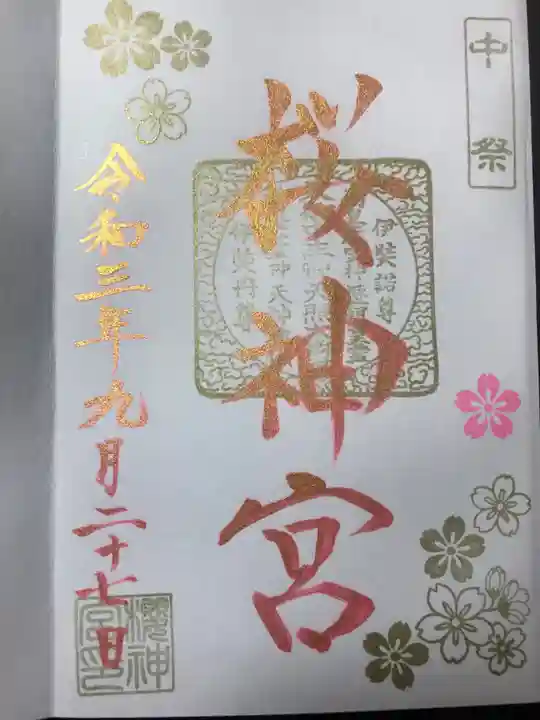 中祭
桜神宮
伊奘諾尊
伊奘冉尊
令和三年九月二十七日
櫻神宮印